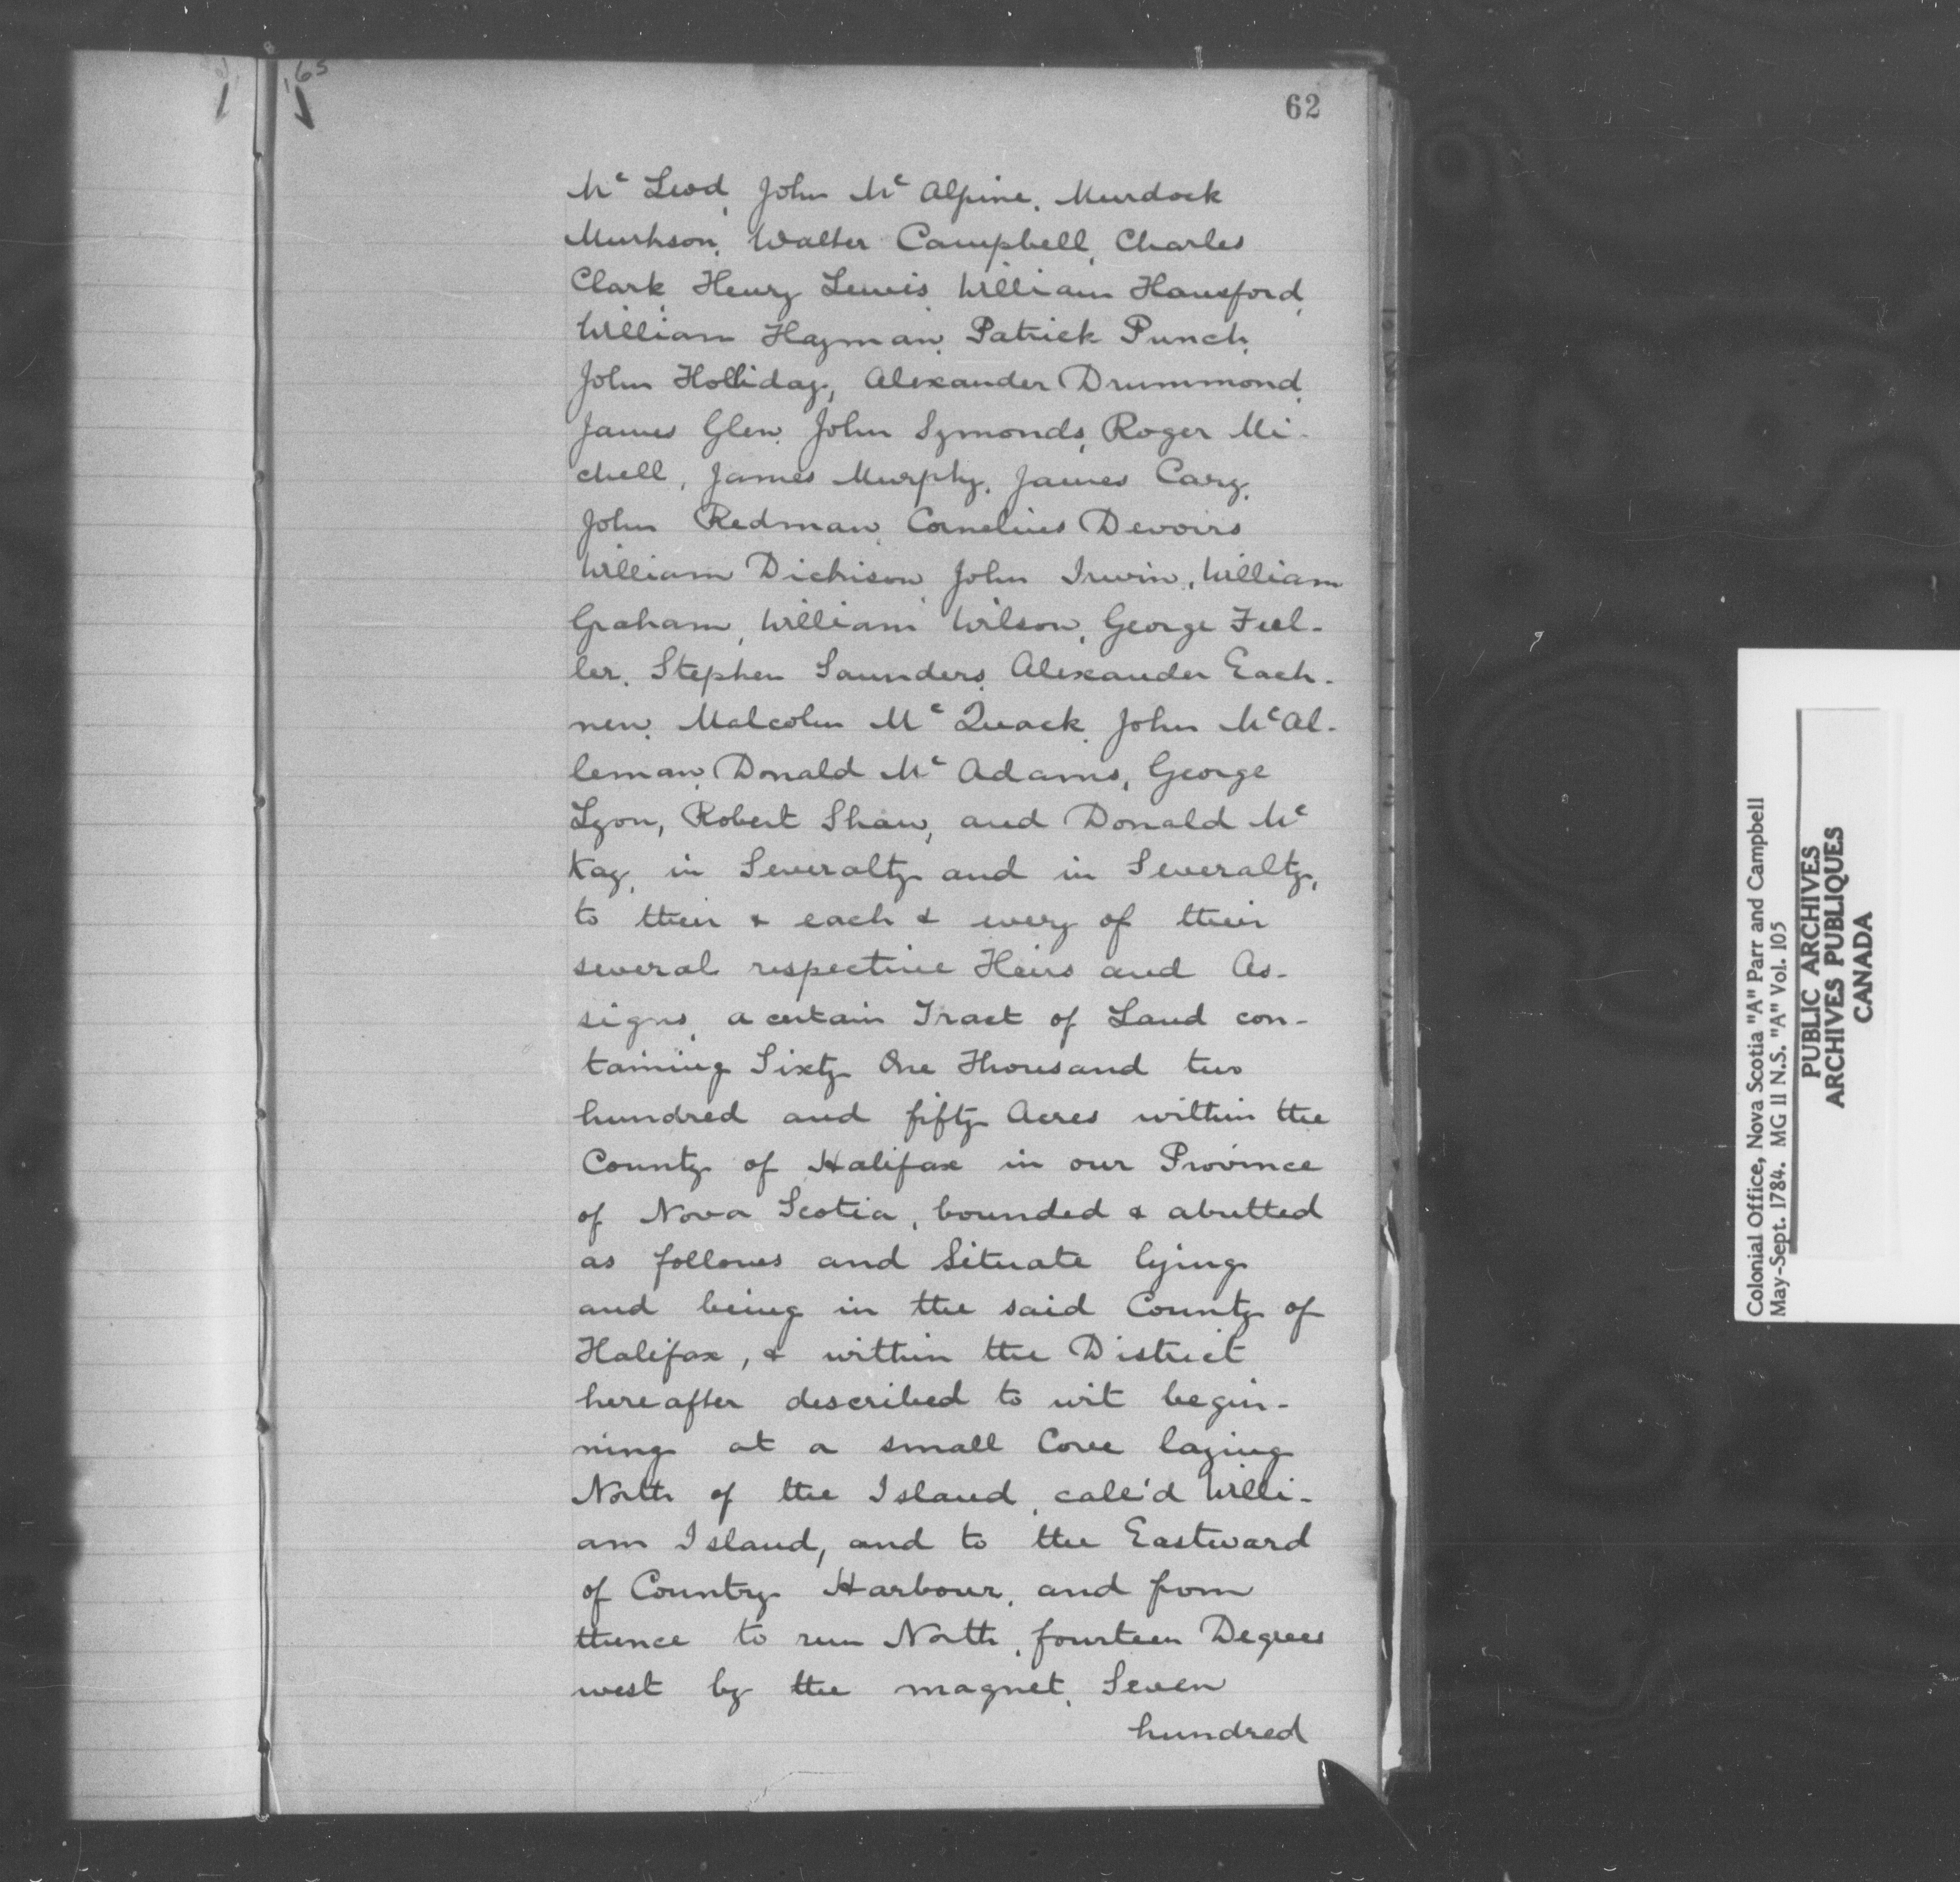 62
Mc Leod, John Mc Alpine, Murdock
Murkson, Walter Campbell, Charles
Clark, Henry Lewis, William Hansford,
William Hayman, Patrick Punch,
John Holliday, Alexander Drummond,
James Glen, John Symonds, Roger Mi-
chell, James Murphy, James Cary,
John Redman, Cornelius Devoirs
William Dickison, John Irwin, William
Graham, William Wilson, George Ful-
ler, Stephen Saunders, Alexander Each-
nen, Malcolm Mc Quack, John McAl-
leman, Donald Mc Adams, George
Lyon, Robert Shaw, and Donald Mc
Kay, in Severalty and in Severalty,
to their & each & every of their
several respective Heirs and As-
signs, a certain Tract of Land con-
taining Sixty One Thousand two
hundred and fifty Acres within the
County of Halifax in our Province
of Nova Scotia, bounded & abutted
as follows and Situate lying
and being in the said County of
Halifax, & within the District
hereafter described to wit begin-
ning at a small Cove laying
North of the Island, call'd Willi-
am Island, and to the Eastward
of Country Harbour, and from
thence to run North, fourteen Degrees
west by the magnet, Seven
hundred
Colonial Office, Nova Scotia "A" Parr and Campbell
May-Sept. 1784. MG 11 N.S. "A" Vol. 105
PUBLIC ARCHIVES
ARCHIVES PUBLIQUES
CANADA